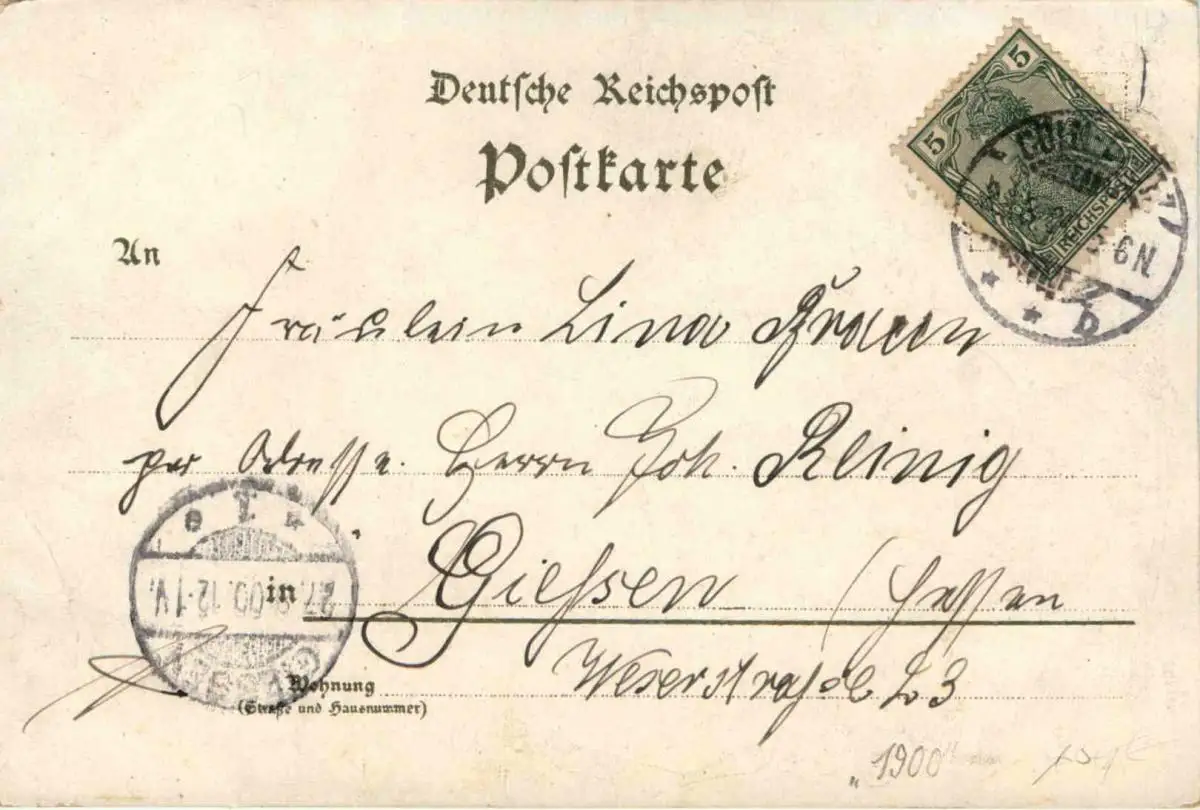 Deutsche Reichspost
Postkarte
5
5
REICHSPOST
6N
b
An
Fräulein Lina Braun
per Adresse. Herrn Joh. Reinig
in Giessen (Hessen
Wohnung Weserstraße 23
(Straße und Hausnummer)
27. 00. 12-1V.
"1900"